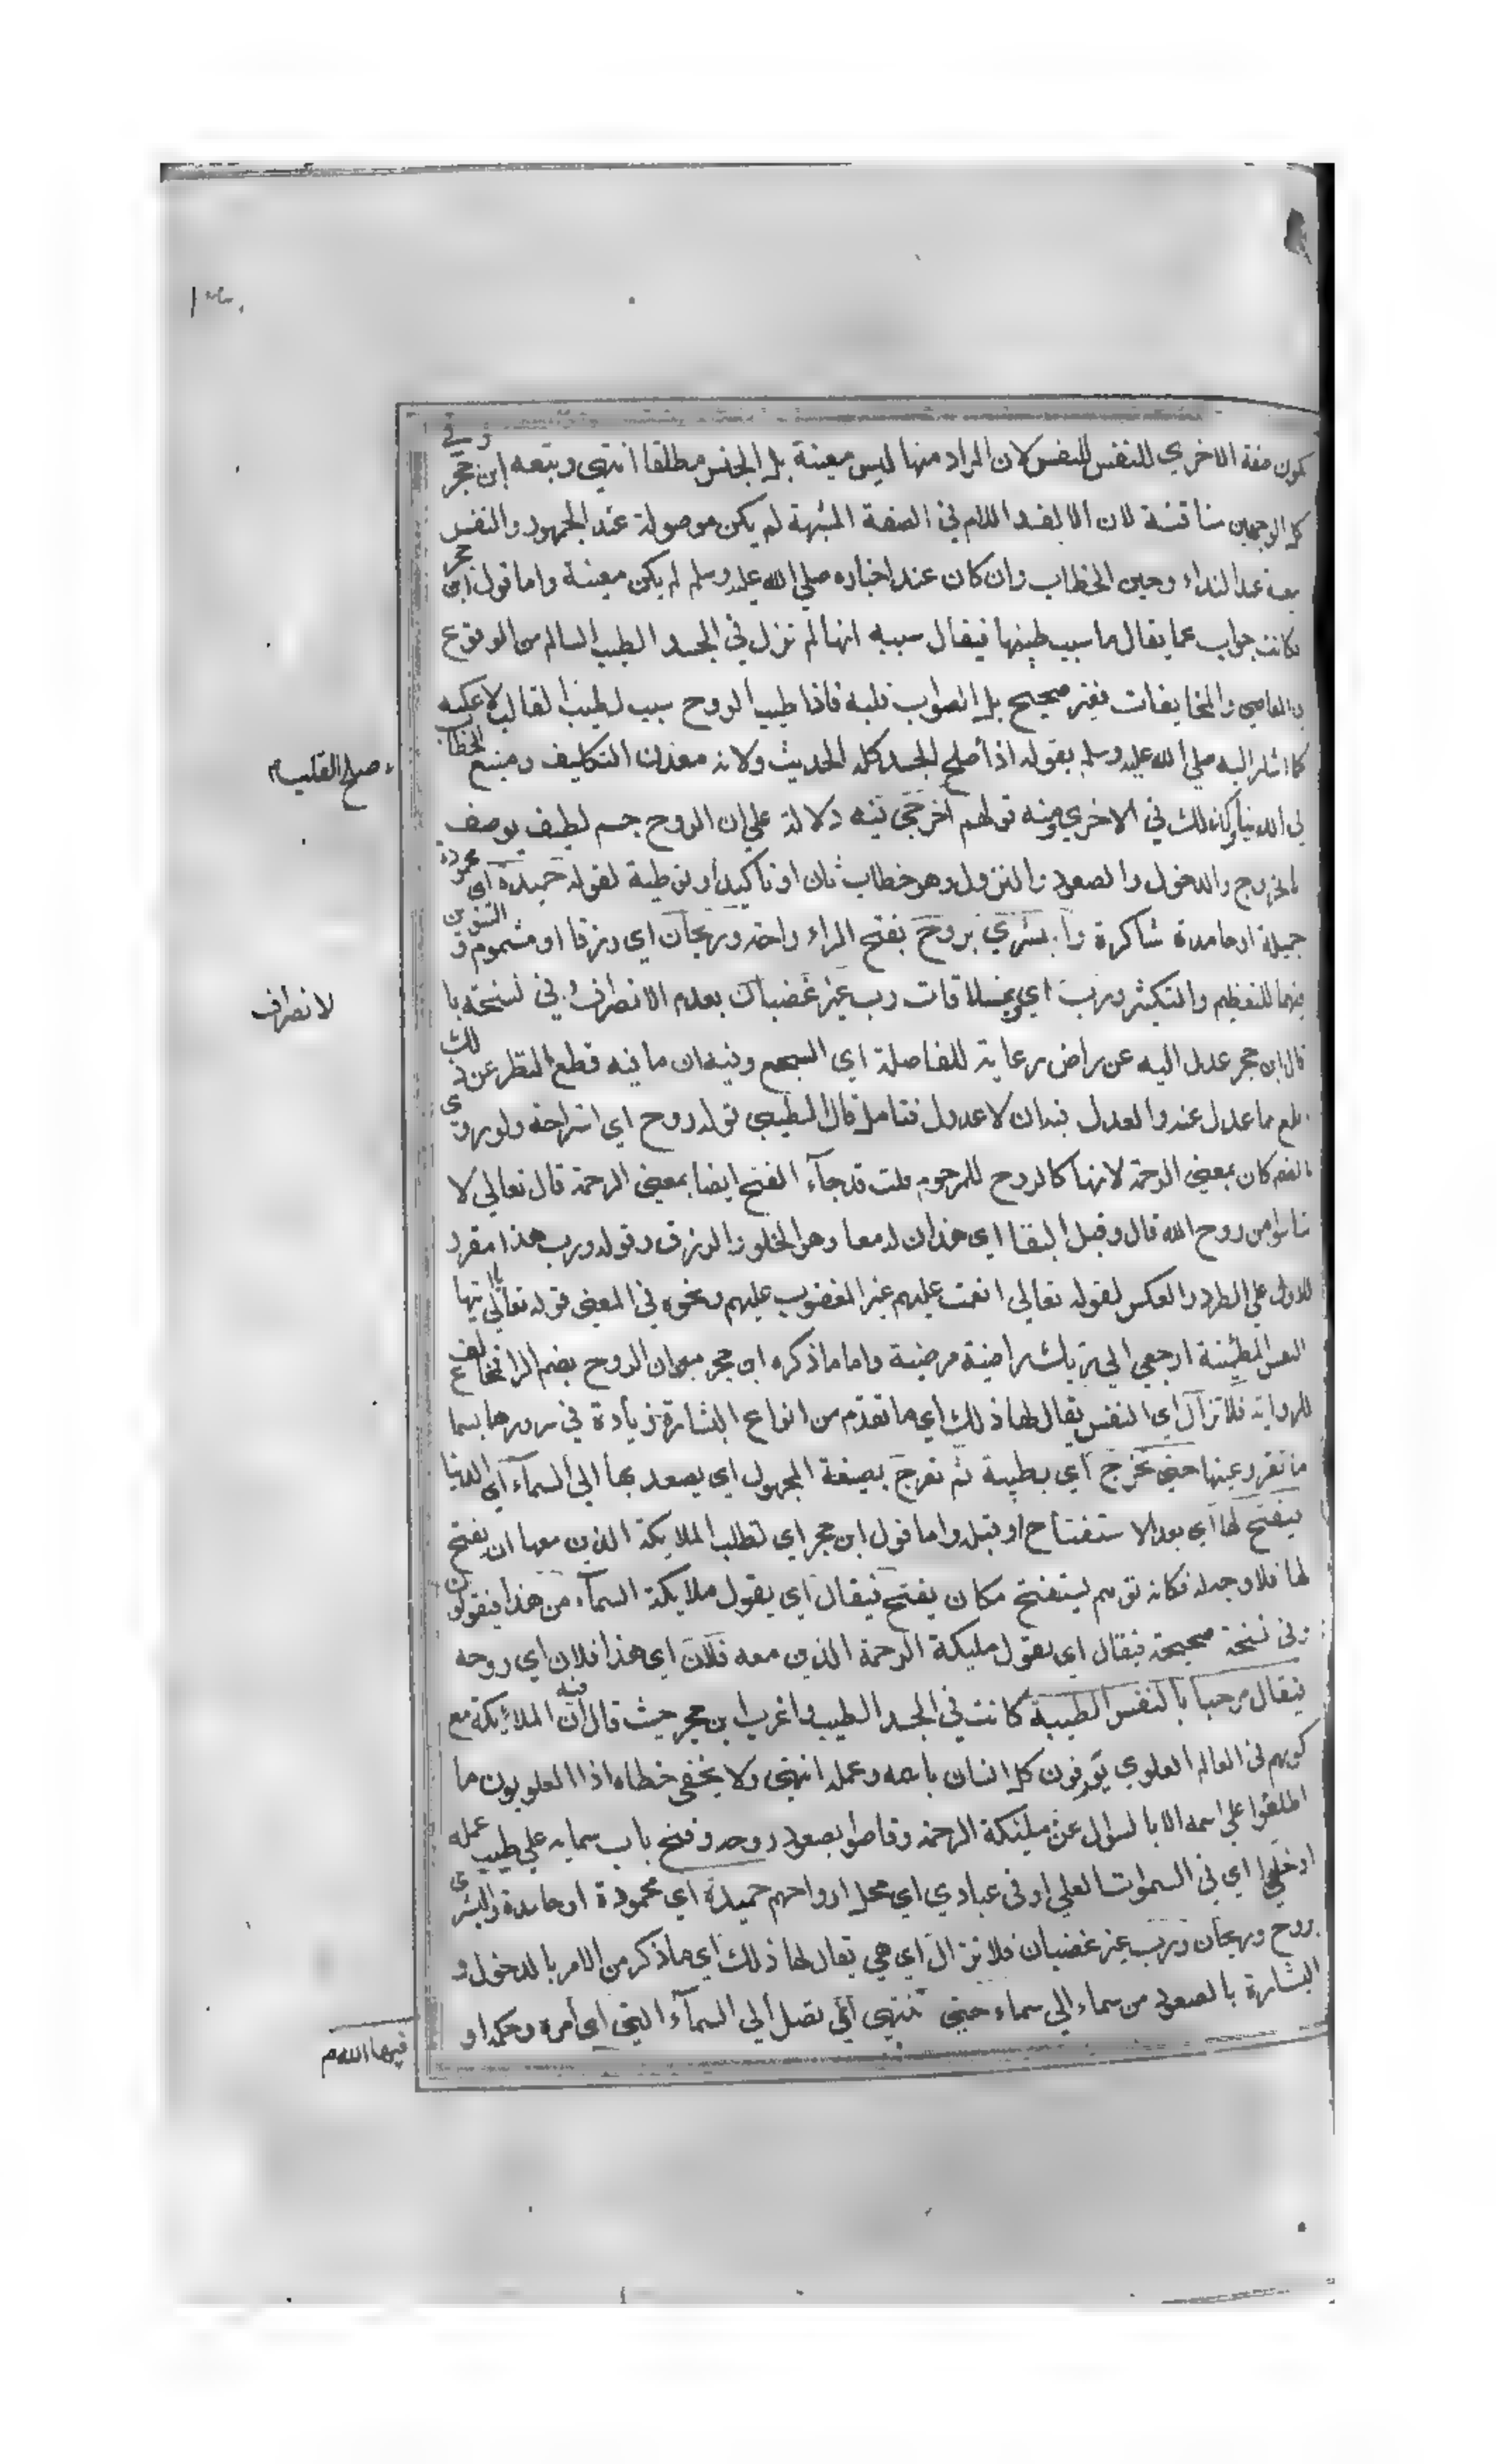 يكون صفة الاخري للنفس للنفس لان المراد منها ليس معينة بل الجنس مطلقا انتهي وتبعه ابن حجر وفي
كل الوجهين مناقشة لان الالف واللام في الصفة المشبهة لم يكن موصولة عند الجمهور والنفس
معينة عند النداء وحين الخطاب وان كان عند اخباره صلي الله عليه وسلم لم يكن معينة واما قول ابن حجر
كانت جواب عما يقال ما سبب طيبها فيقال سببه انها لم تزل في الجسد الطيب السالم من الوقوع
في المعاصي والمخالفات فغير صحيح بل الصواب قلبه فاذا طيب الروح سبب لطيب القالب لا عكسه
كما اشار اليه صلي الله عليه وسلم بقوله اذا صلح الجسد كله الحديث ولانه معدن التكاليف ومنبع الخطاب
صلح القلب
في الدنيا وكذلك في الاخري ومنه قولهم اخرجي فيه دلالة علي ان الروح جسم لطيف يوصف
بالخروج والدخول والصعود والنزول وهو خطاب ثان او تاكيد او توطية لقوله حميدة اي محمودة
جميلة او حامدة شاكرة وابشري بروح بفتح الراء راحة وريحان اي رزقا او مشموم والتنوين
فيهما للتعظيم والتكثير ورب اي وبملاقات رب غير غضبان بعدم الانصراف وفي نسخة با
لانصراف
قال ابن حجر عدل اليه عن راض رعاية للفاصلة اي السجع وفيه ان ما فيه قطع النظر عن ذلك
ابلغ مما عدل عنه والعدل فيه ان لا عدول فتامل قال الطيبي قوله روح اي استراحة ولو روي
بالضم كان بمعني الرحمة لانها كالروح للمرحوم قلت قد جآء الفتح ايضا بمعني الرحمة قال تعالي لا
تياسوا من روح الله قال وقيل البقا اي هذان له معا وهو الخلود والرزق وقوله ورب هذا مقرر
للاول علي الطرد والعكس لقوله تعالي انعمت عليهم غير المغضوب عليهم ونحوه في المعني قوله تعالي يا ايتها
النفس المطمئنة ارجعي الي ربك راضية مرضية واما ما ذكره ابن حجر من ان الروح بضم الرا فمخالف
للرواية فلا تزال اي النفس يقال لها ذلك اي ما تقدم من انواع البشارة زيادة في سرورها بسما
ما تقر به عينها حتي تخرج اي بطيبة ثم تعرج بصيغة المجهول اي يصعد بها الي السمآء اي الدنيا
فيفتح لها اي بعد الاستفتاح او قبله واما قول ابن حجر اي تطلب الملايكة الذين معها ان يفتح
لها فلا وجه له فكانه توهم يستفتح مكان يفتح فيقال اي يقول ملايكة السمآء من هذا فيقولون
وفي نسخة صحيحة فيقال اي يقول مليكة الرحمة الذين معه فلان اي هذا فلان اي روحه
فيقال مرحبا بالنفس الطيبة كانت في الجسد الطيب واغرب ابن حجر حيث قال فيه ان الملائكة مع
كونهم في العالم العلوي يعرفون كل انسان باسمه وعمله انتهي ولا يخفي خطاه اذ العلويون ما
اطلعوا علي اسمه الا بالسوال عن مليكة الرحمة بصعود روحه وفتح باب سمايه علي طيب عمله
ادخلي اي في السموات العلي او في عبادي اي محل ارواحهم حميدة اي محمودة او حامدة وابشري
بروح وريحان ورب غير غضبان فلا تزال اي هي يقال لها ذلك اي ما ذكر من الامر بالدخول و
البشارة بالصعود من سماء الي سماء حتي تنتهي اي تصل الي السمآء التي اي امره وحكمه او
فيها الله م